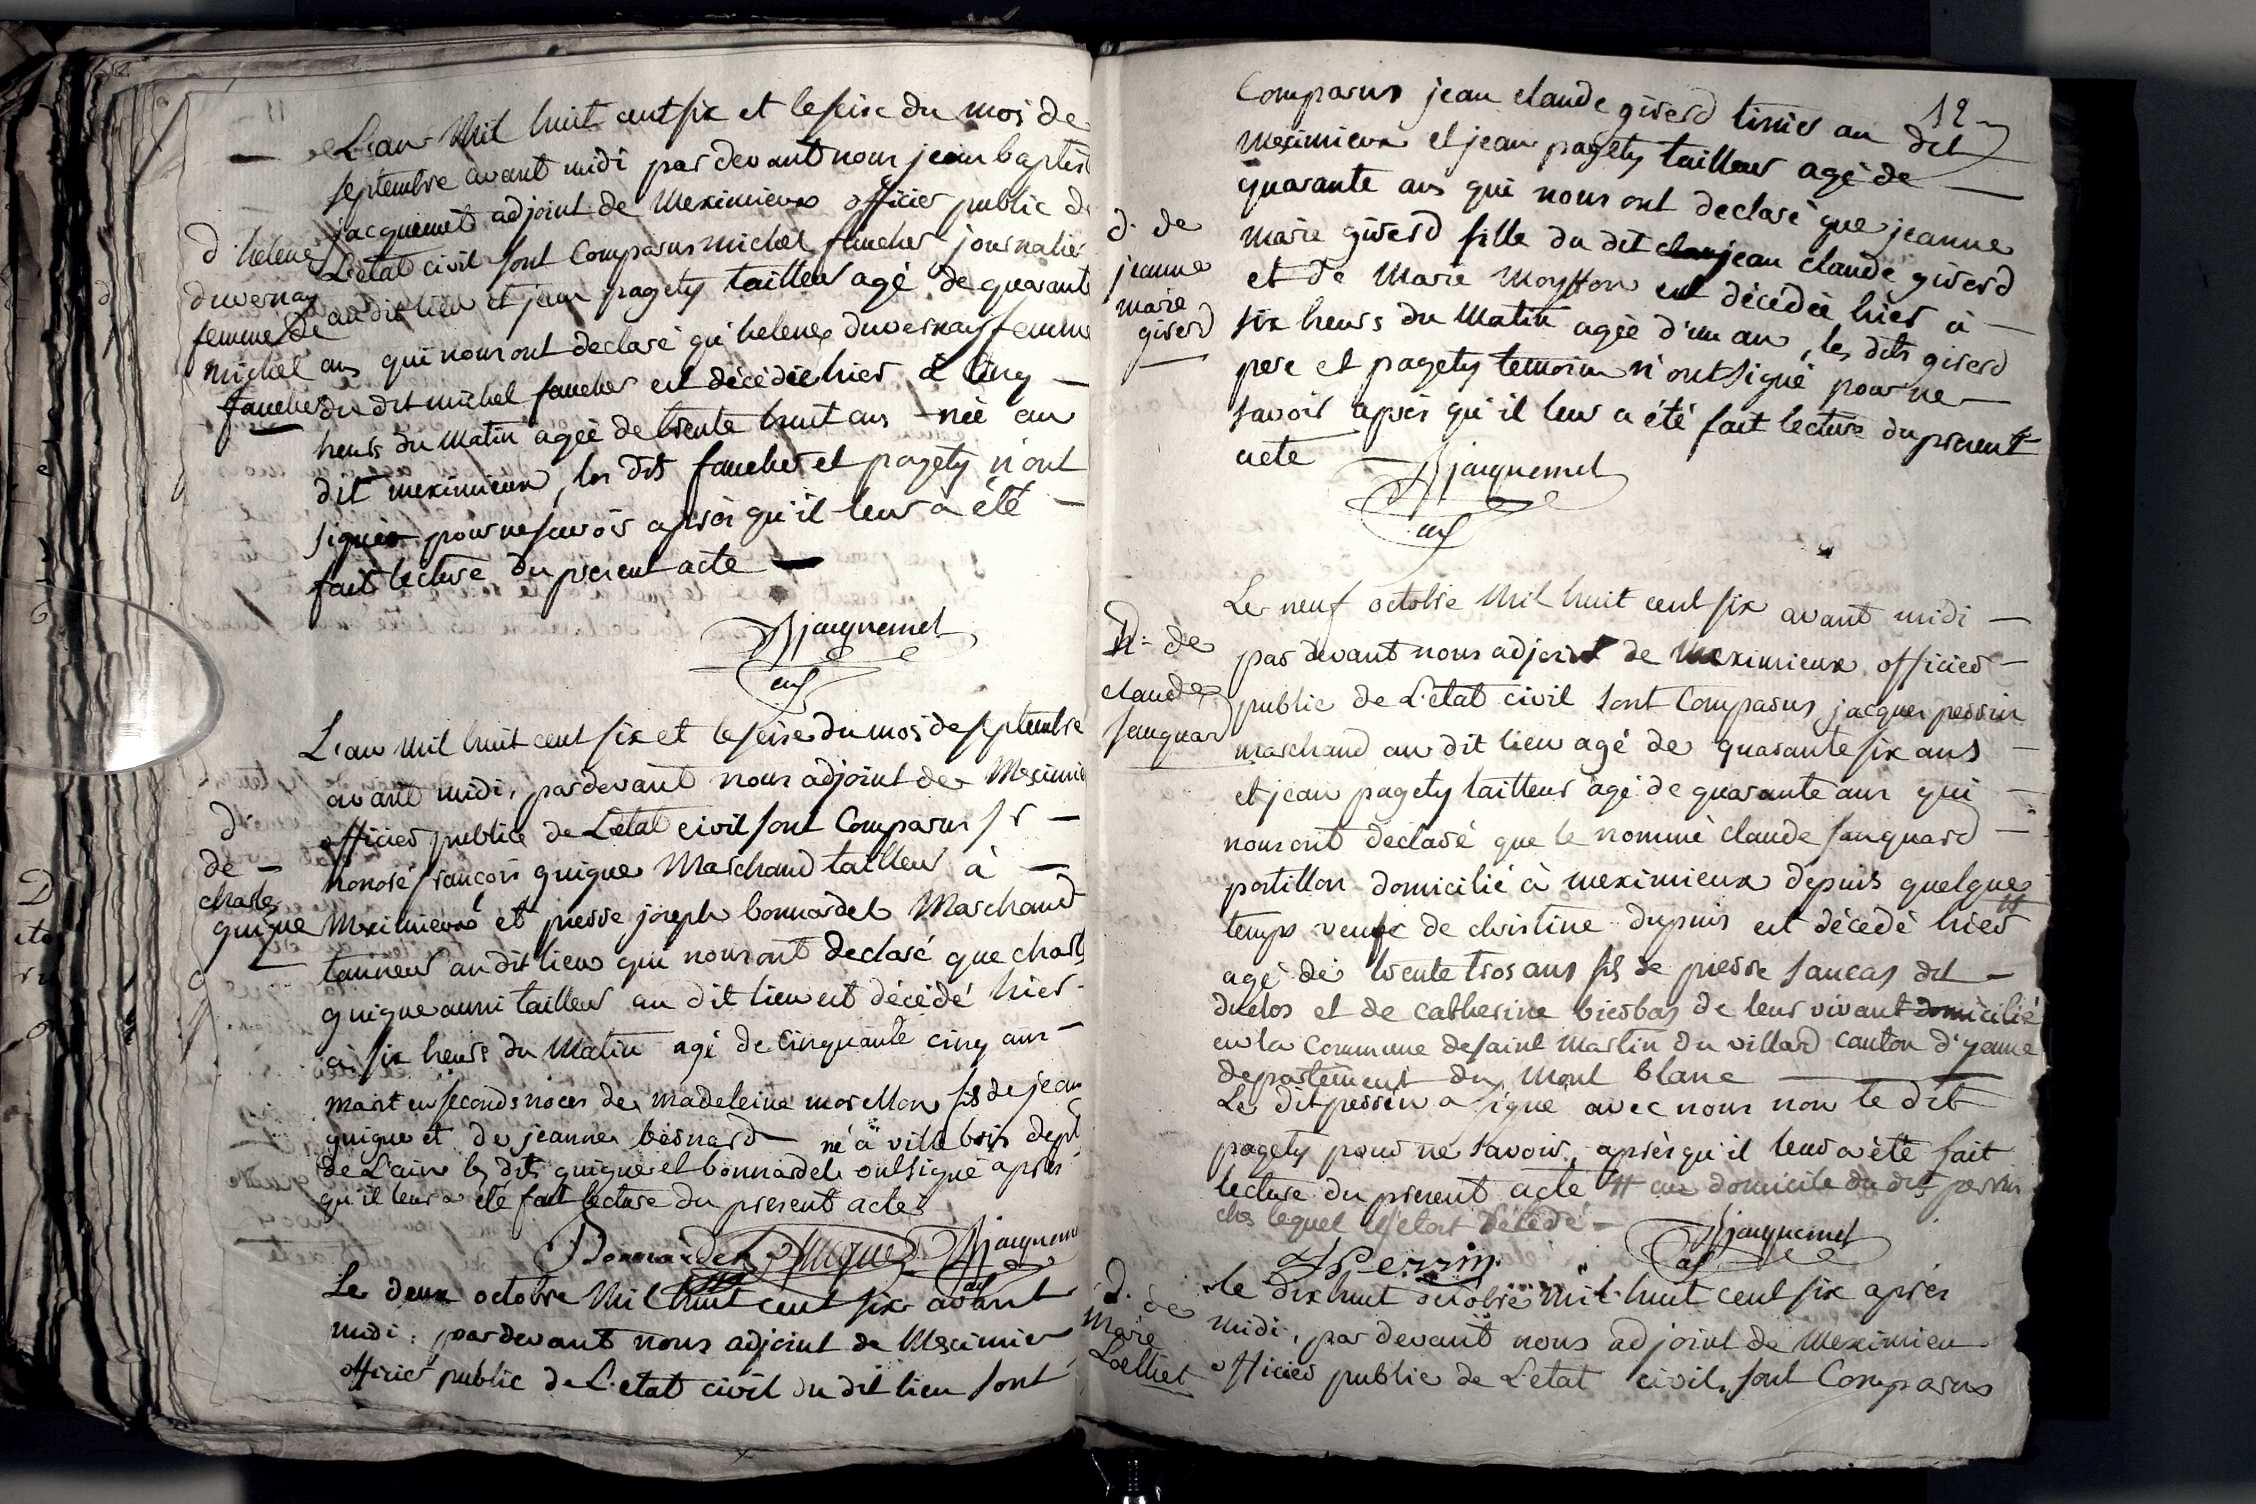 L'an Mil huit cent six et le seise du mois de
septembre avant midi par devant nous jean baptis
jacquemet adjoint de Meximieux officier public de
L'etat civil sont Comparus michel faucher journalier
au dit lieu et jean pagety tailleur agé de quarante
ans qui nous ont declaré qu'helene duvernay femme
du dit michel faucher est décédée hier à cinq
heurs du Matin agée de trente huit ans née au
dit meximieux, les dits faucher et pagety n'ont
signés pour ne savoir après qu'il leur à été
fait lecture du present acte
d. helene
duvernay
femme de
michel
faucher
Bjacquemet
adj
L'an mil huit cent six et le seise du mois de septembre
avant midi, par devant nous adjoint de Meximie
officier public de L'etat civil sont Comparus sr
honoré françois guigue Marchand tailleur à
Meximieux et pierre joseph bonnardel Marchand
tanneur au dit lieu qui nous ont declaré que charles
guigue aussi tailleur au dit lieu est décédé hier
à six heurs du Matin agé de cinquante cinq ans
marit en seconds noces de madeleine morellon fils de jean
guigue et de jeanne besnard né à villebois dept
de L'ain les dits guigue et bonnardel ont signé après
qu'il leur a été fait lecture du present acte
d.
de
charles
guigue
Bonnardel guigue Bjacquemet
adj
Le deux octobre Mil huit cent six avant
midi, par devant nous adjoint de Meximieu
officier public de L'etat civil du dit lieu sont
12
Comparus jean claude giverd au dit
meximieux et jean pagety tailleur agé de
quarante ans qui nous ont declaré que jeanne
marie giverd fille du dit jean claude giverd
et de Marie est décédée hier à
six heurs du Matin agée d'un an, les dits giverd
pere et pagety temoins n'ont signé pour ne
savoir après qu'il leur a été fait lecture du present
acte
d. de
jeanne
marie
giverd
Bjacquemet
adj
Le neuf octobre Mil huit cent six avant midi
par devant nous adjoint de Meximieux officier
public de L'etat civil sont Comparus jacques perrin
marchand au dit lieu agé de quarante six ans
et jean pagety tailleur agé de quarante ans qui
nous ont declaré que le nommé claude sauquard
postillon domicilié à meximieux depuis quelque
temps veuf de christine dupuis est décédé hier #
agé de trente trois ans fils de pierre saucas dit
duclos et de catherine bierbas de leur vivant domicilié
en la Commune de saint Martin du villard canton d'yanne
departement du Mont blanc
Le dit perrin a signé avec nous non le dit
pagety pour ne savoir, après qu'il leur a été fait
lecture du present acte # au domicile du dit perrin
ches lequel il etoit décédé
D. de
claude
sauquar
JPerrin Bjacquemet
adj
Le dix huit octobre mil huit cent six après
midi, par devant nous adjoint de Meximieu
officier public de L'etat civil, sont Comparus
d. de
Marie